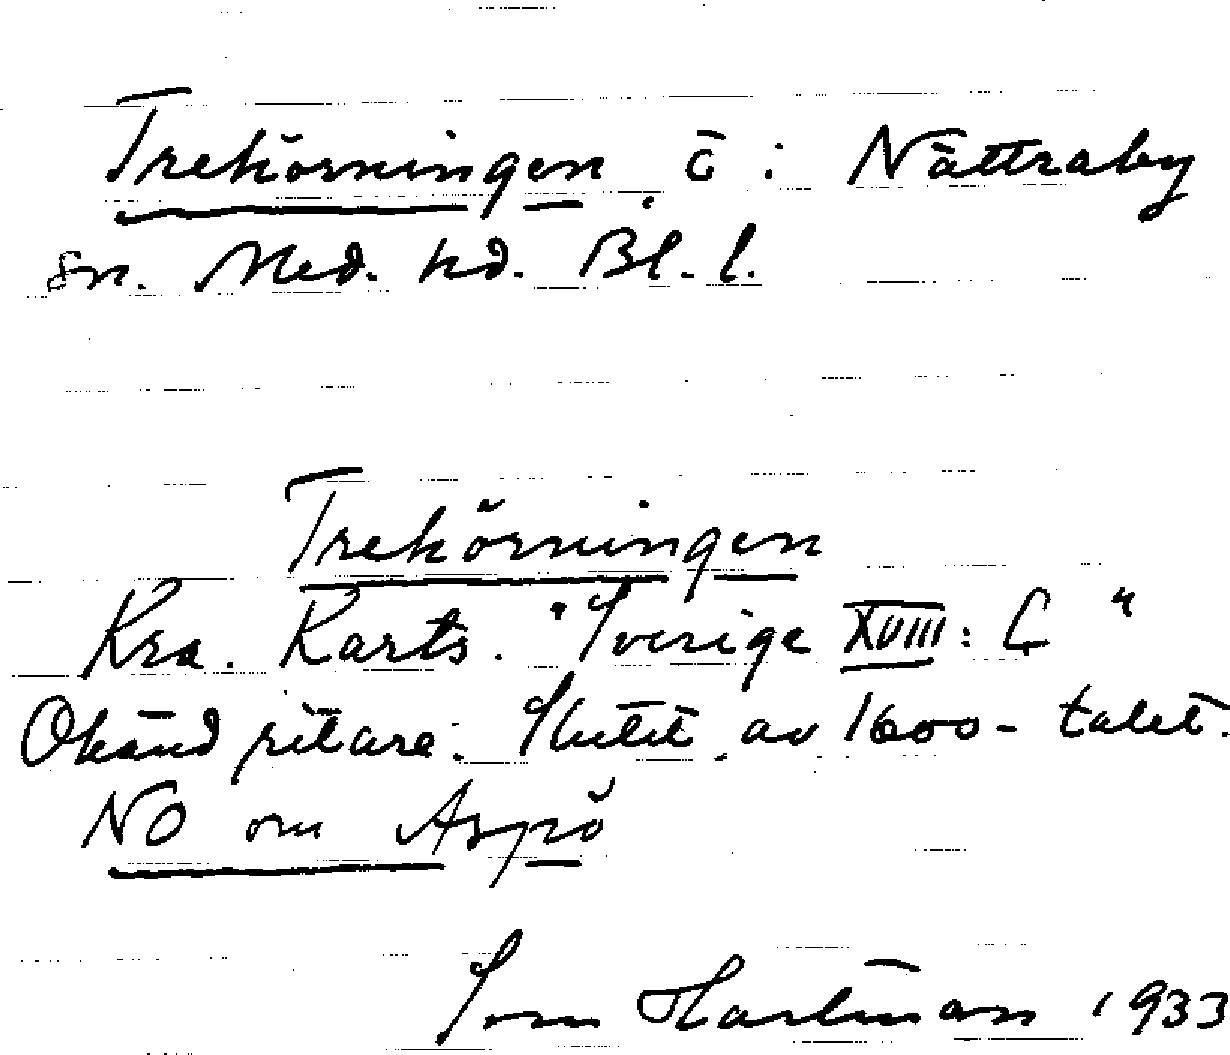 Trekörningen, ö: Nättraby
sn. Med. hd. Bl. l.
Trekörningen
Kra. Karts. "Sverige XVIII: C"
Okänd ritare. Slutet av 1600-talet.
NO om Aspö
Sven Hartman 1933